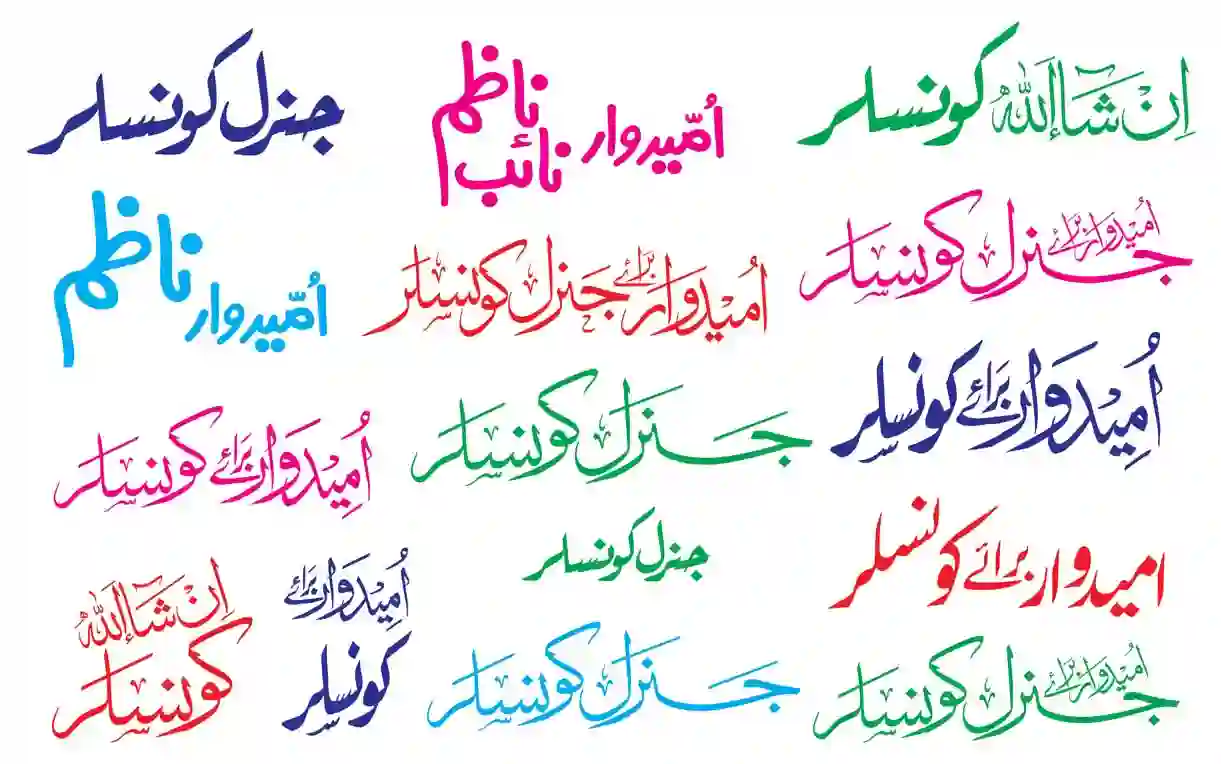 ان شاءاللہ کونسلر
امیدوار ناظم نائب ناظم
جنرل کونسلر
امیدوار برائے جنرل کونسلر
امیدوار برائے جنرل کونسلر
امیدوار ناظم
امیدوار برائے کونسلر
جنرل کونسلر
امیدوار برائے کونسلر
امیدوار برائے کونسلر
جنرل کونسلر
امیدوار برائے
کونسلر
ان شاءاللہ
کونسلر
امیدوار برائے جنرل کونسلر
جنرل کونسلر